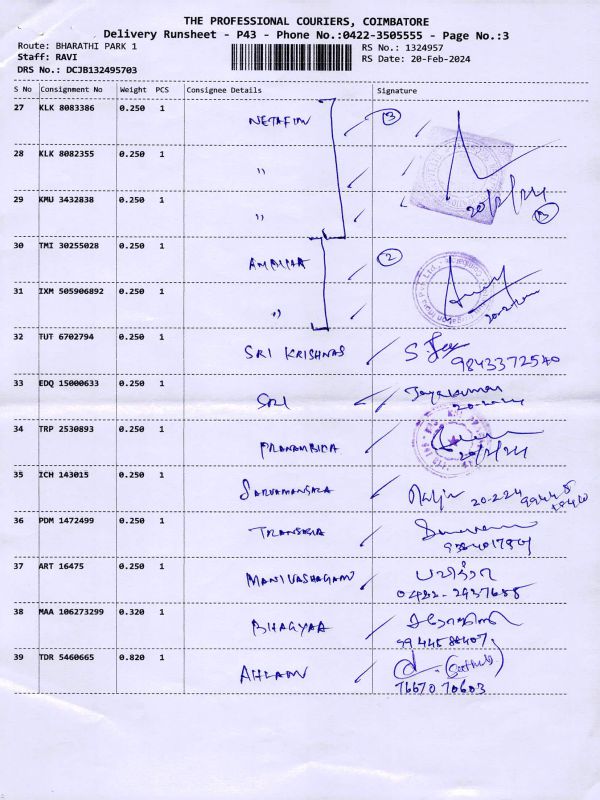 THE PROFESSIONAL COURIERS, COIMBATORE
Delivery Runsheet - P43 - Phone No.:0422-3505555 - Page No.:3
Route: BHARATHI PARK 1
RS No.: 1324957
Staff: RAVI
RS Date: 20-Feb-2024
DRS No.: DCJB132495703
S No Consignment No Weight PCS Consignee Details Signature
27 KLK 8083386 0.250 1 NETAFIM 3
28 KLK 8082355 0.250 1 "
29 KMU 3432838 0.250 1 " 20/2/24 3
30 TMI 30255028 0.250 1 2
31 IXM 505906892 0.250 1 "
32 TUT 6702794 0.250 1 SRI KRISHNAS 9843372540
33 EDQ 15000633 0.250 1 SRI Jayakumar
34 TRP 2530893 0.250 1 PRANAMBIKA 20/2/24
35 ICH 143015 0.250 1 SARVAMANGALA 20-2-24
36 PDM 1472499 0.250 1
37 ART 16475 0.250 1 MANIVASHAGAM
38 MAA 106273299 0.320 1 BHAGYAA
39 TDR 5460665 0.820 1 AHLAM 76670 70603